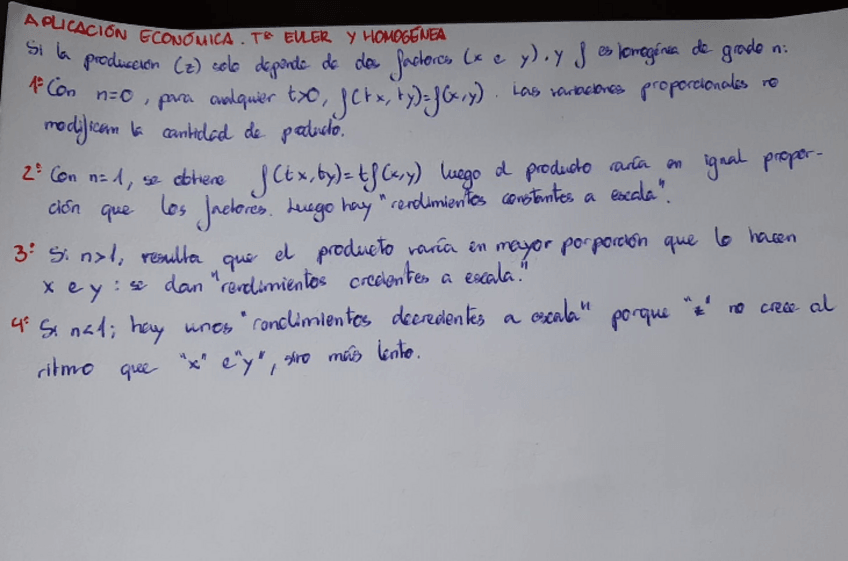 APLICACIÓN ECONÓMICA. Tª EULER Y HOMOGÉNEA
Si la producción (z) solo depende de dos factores (x e y), y f es homogénea de grado n:
1º Con n=0, para cualquier t>0, f(tx, ty)=f(x,y). Las variaciones proporcionales no
modifican la cantidad de producto.
2º Con n=1, se obtiene f(tx,ty)=tf(x,y) luego el producto varía en igual propor-
ción que los factores. Luego hay "rendimientos constantes a escala".
3º Si n>1, resulta que el producto varía en mayor porporción que lo hacen
x e y: se dan "rendimientos crecientes a escala."
4º Si n<1; hay unos "rendimientos decrecientes a escala" porque "z" no crece al
ritmo que "x" e "y", sino más lento.